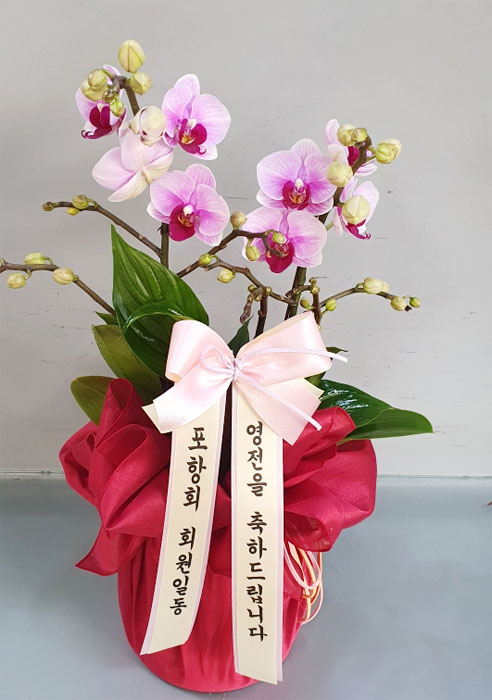 영전을 축하드립니다
포항회 회원일동